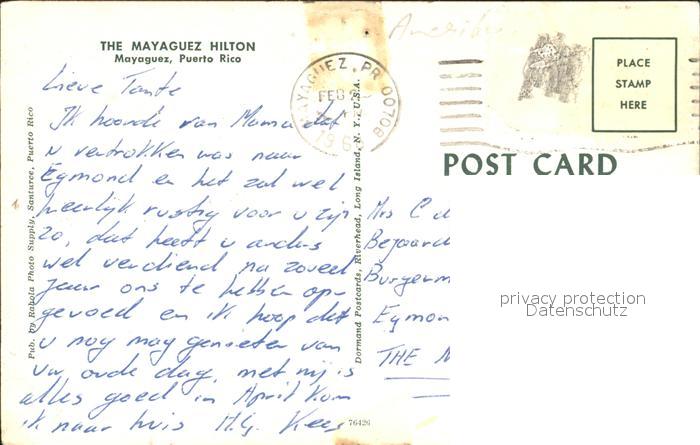 THE MAYAGUEZ HILTON
Mayaguez, Puerto Rico
Lieve Tante
Ik hoorde van Mama dat
u vertrokken was naar
Egmond en het zal wel
heerlijk rustig voor u zijn
zo, dat heeft u anders
wel verdiend na zoveel
jaar ons te hebben op-
gevoed en ik hoop dat
u nog mag genieten van
uw oude dag, met mij is
alles goed in April kom
ik naar huis H.G. Kees
Pub. by Rahola Photo Supply, Santurce, Puerto Rico
Dormand Postcards, Riverhead, Long Island, N. Y., U.S.A.
76426
MAYAGUEZ, PR 00708
FEB
PLACE
STAMP
HERE
POST CARD
Mrs C d
Bejaard
Burgem
Egmon
THE N
privacy protection
Datenschutz